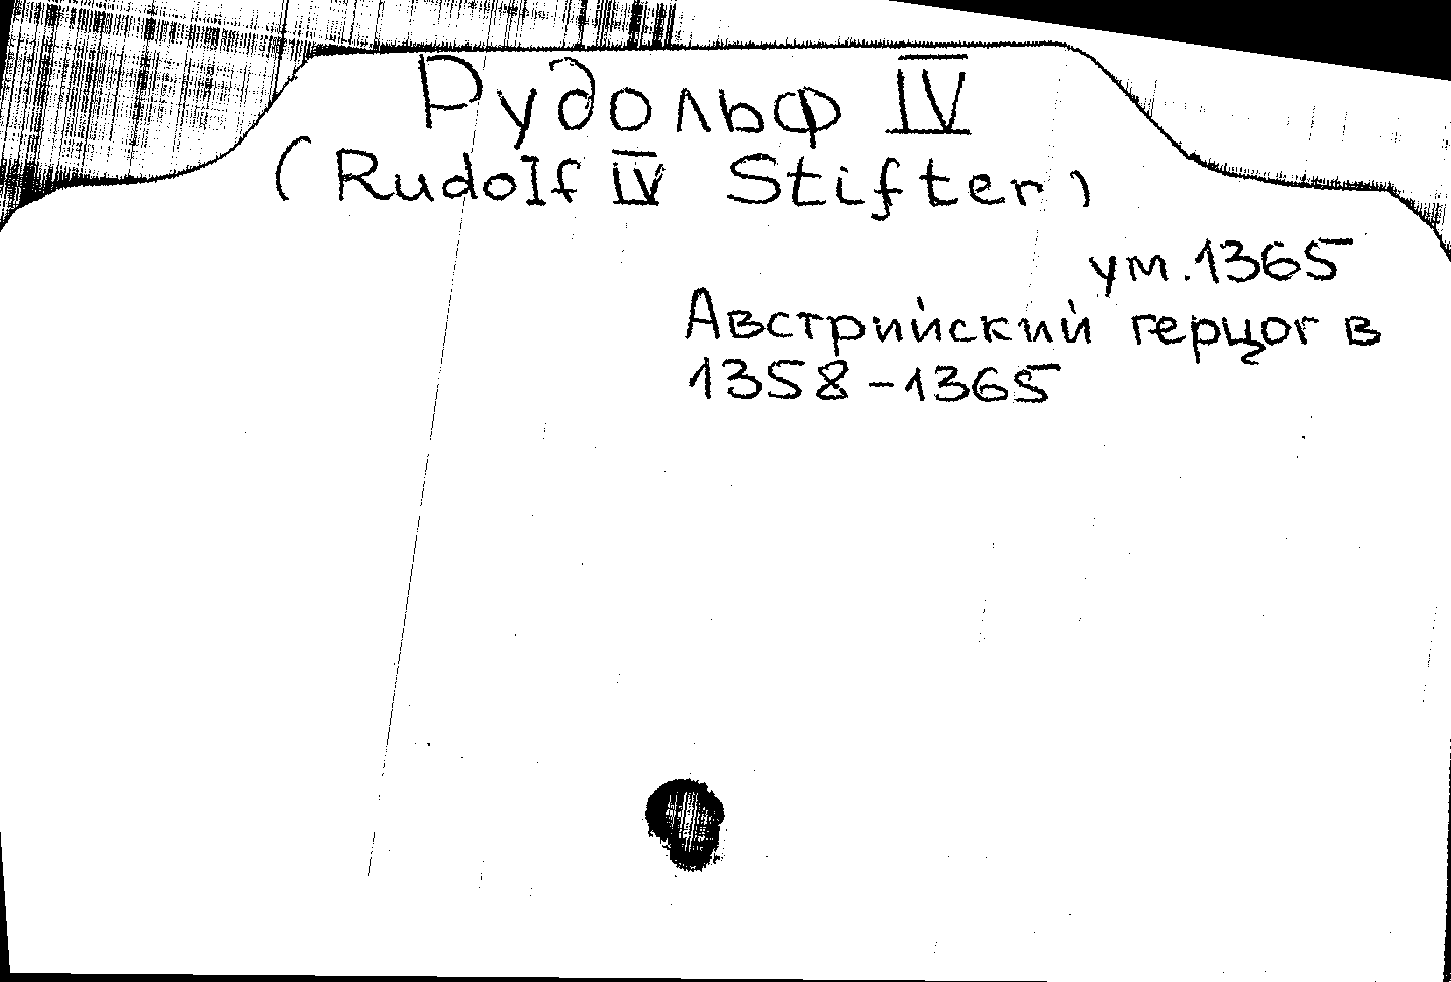 Рудольф IV
(Rudolf IV Stifter)
ум. 1365
Австрийский герцог в
1358-1365